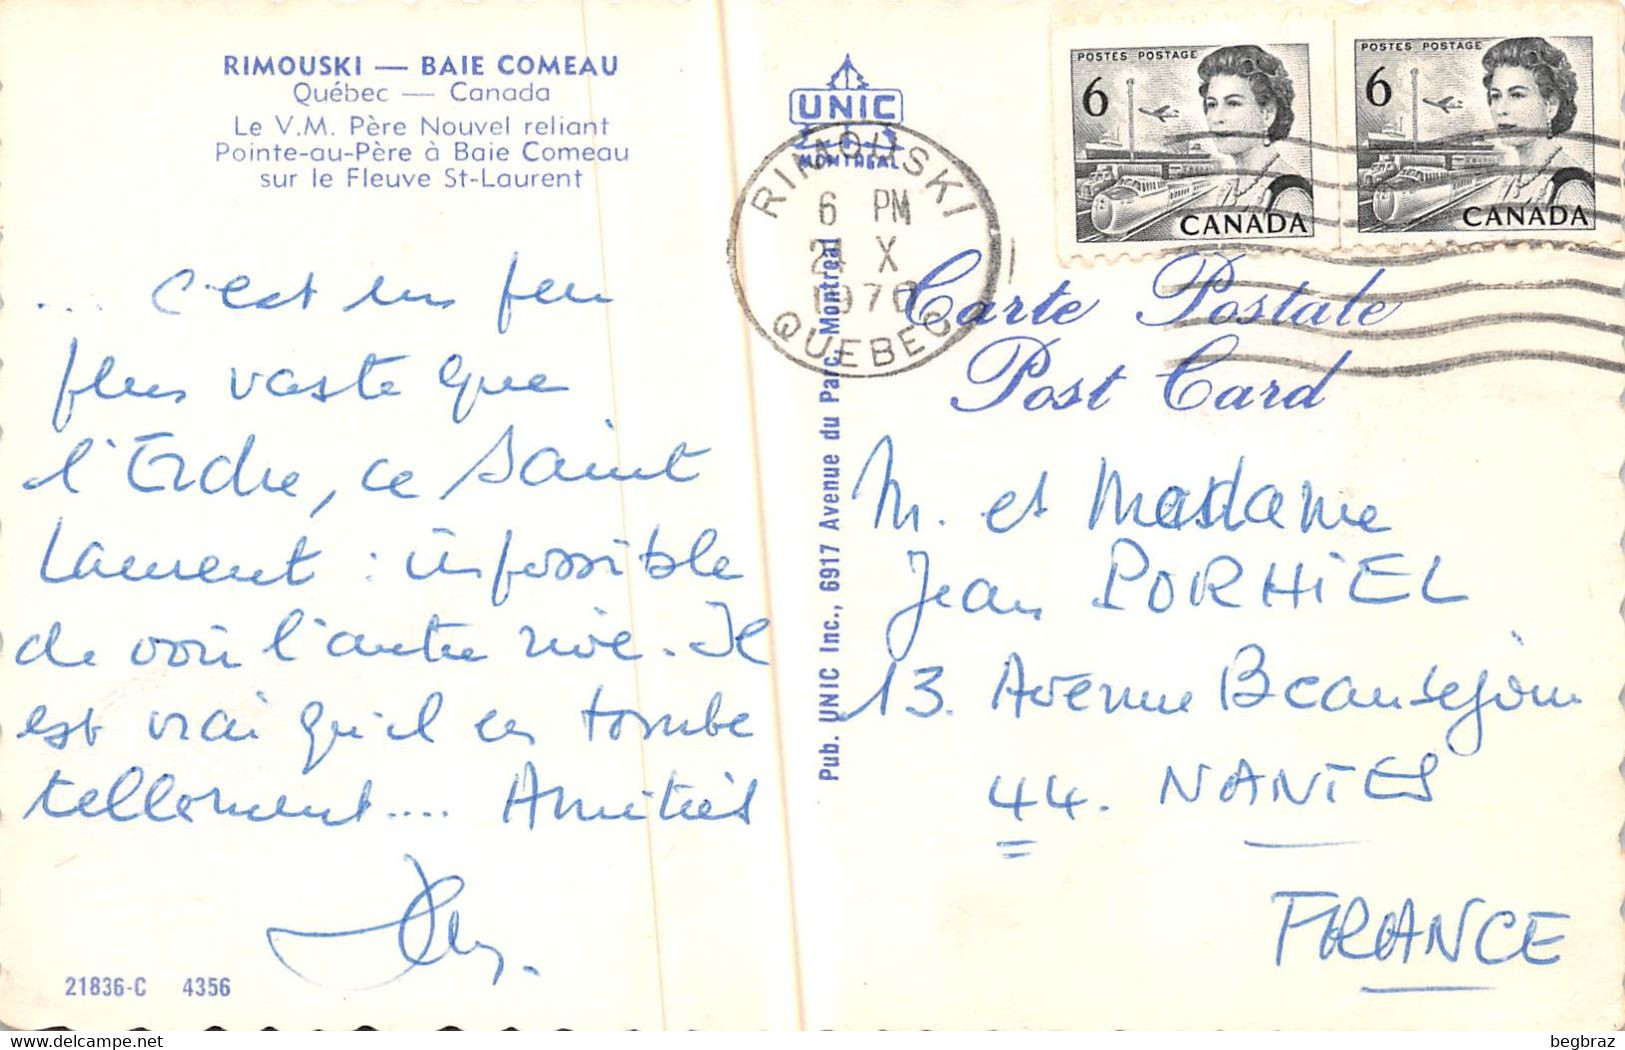 RIMOUSKI — BAIE COMEAU
Québec — Canada
Le V.M. Père Nouvel reliant
Pointe-au-Père à Baie Comeau
sur le Fleuve St-Laurent
... c'est un peu
plus vaste que
l'Erdre, ce Saint
Laurent : impossible
de voir l'autre rive. Il
est vrai qu'il en tombe
tellement.... Amitiés
21836-C 4356
Pub. UNIC Inc., 6917 Avenue du Parc, Montréal
UNIC
MONTREAL
RIMOUSKI
6 PM
X
1970
QUEBEC
POSTES POSTAGE
6
CANADA
POSTES POSTAGE
6
CANADA
Carte Postale
Post Card
M. et Madame
Jean PORHIEL
13. Avenue Beauséjour
44. NANTES
FRANCE
begbraz